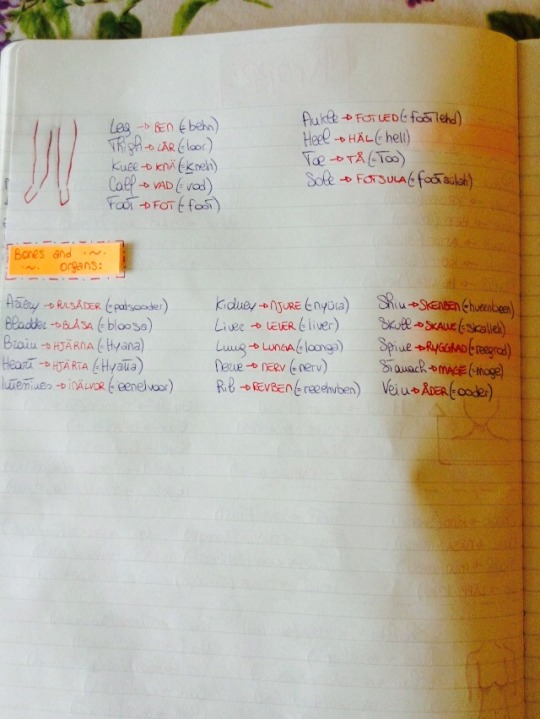 Leg → BEN (=behn)
Thigh → LÅR (=loor)
Knee → KNÄ (=kneh)
Calf → VAD (=vad)
Foot → FOT (=foot)
Ankle → FOTLED (=footlehd)
Heel → HÄL (=hell)
Toe → TÅ (=Too)
Sole → FOTSULA (=footsulah)
Bones and
organs:
Artery → PULSÅDER (=pulsooder)
Bladder → BLÅSA (=bloosa)
Brain → HJÄRNA (=Hyarna)
Heart → HJÄRTA (=Hyarta)
Intestines → INÄLVOR (=eenelvoor)
Kidney → NJURE (=nyura)
Liver → LEVER (=liver)
Lung → LUNGA (=loonga)
Nerve → NERV (=nerv)
Rib → REVBEN (=reeehvben)
Shin → SKENBEN (=hwenbeen)
Skull → SKALLE (=skalleh)
Spine → RYGGRAD (=reegrad)
Stomach → MAGE (=mage)
Vein → ÅDER (=ooder)